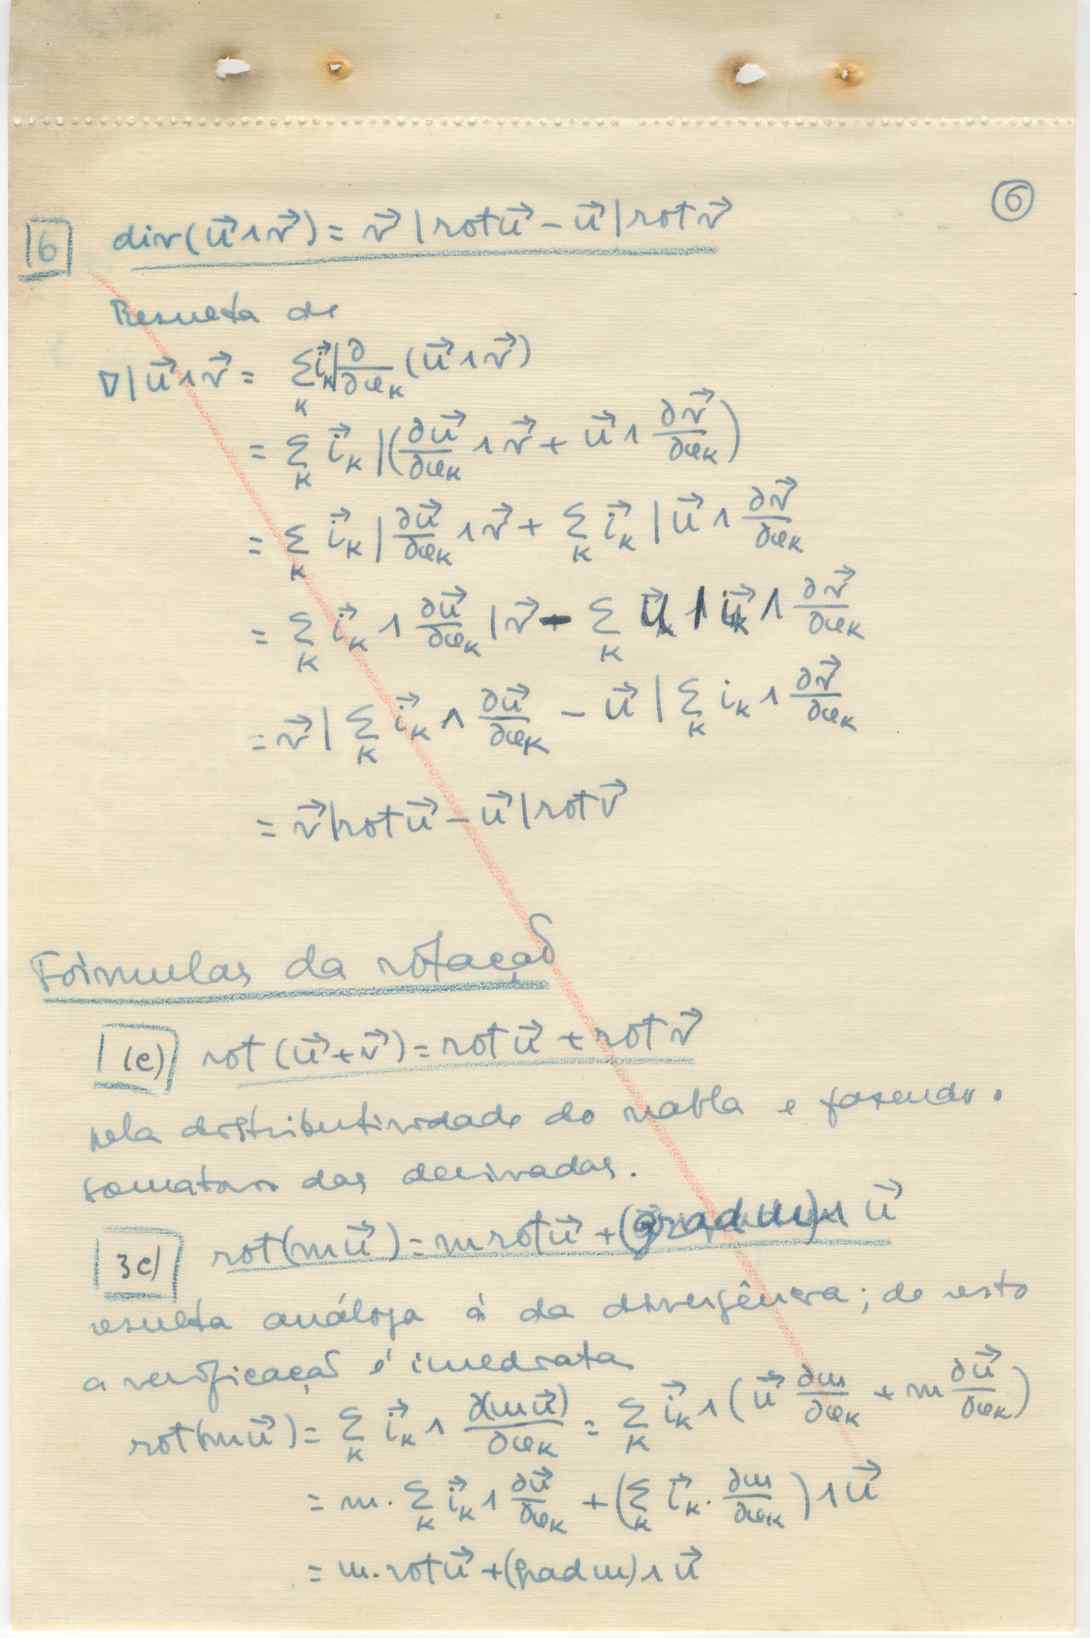 6
6 div(u⃗ ∧ v⃗) = v⃗ | rot u⃗ − u⃗ | rot v⃗
Resulta de
∇ | u⃗ ∧ v⃗ = Σ_k i⃗_k | ∂/∂x_k (u⃗ ∧ v⃗)
= Σ_k i⃗_k | (∂u⃗/∂x_k ∧ v⃗ + u⃗ ∧ ∂v⃗/∂x_k)
= Σ_k i⃗_k | ∂u⃗/∂x_k ∧ v⃗ + Σ_k i⃗_k | u⃗ ∧ ∂v⃗/∂x_k
= Σ_k i⃗_k ∧ ∂u⃗/∂x_k | v⃗ − Σ_k u⃗ | i⃗_k ∧ ∂v⃗/∂x_k
= v⃗ | Σ_k i⃗_k ∧ ∂u⃗/∂x_k − u⃗ | Σ_k i_k ∧ ∂v⃗/∂x_k
= v⃗ | rot u⃗ − u⃗ | rot v⃗
Fórmulas da rotação
1(e) rot (u⃗ + v⃗) = rot u⃗ + rot v⃗
pela distributividade do nabla e fazendo o
somatorio das derivadas.
3e) rot(m u⃗) = m rot u⃗ + (grad m) ∧ u⃗
resulta análoga à da divergência; de resto
a verificação é imediata
rot(m u⃗) = Σ_k i⃗_k ∧ ∂(m u⃗)/∂x_k = Σ_k i⃗_k ∧ (u⃗ ∂m/∂x_k + m ∂u⃗/∂x_k)
= m · Σ_k i⃗_k ∧ ∂u⃗/∂x_k + (Σ_k i⃗_k · ∂m/∂x_k) ∧ u⃗
= m · rot u⃗ + (grad m) ∧ u⃗